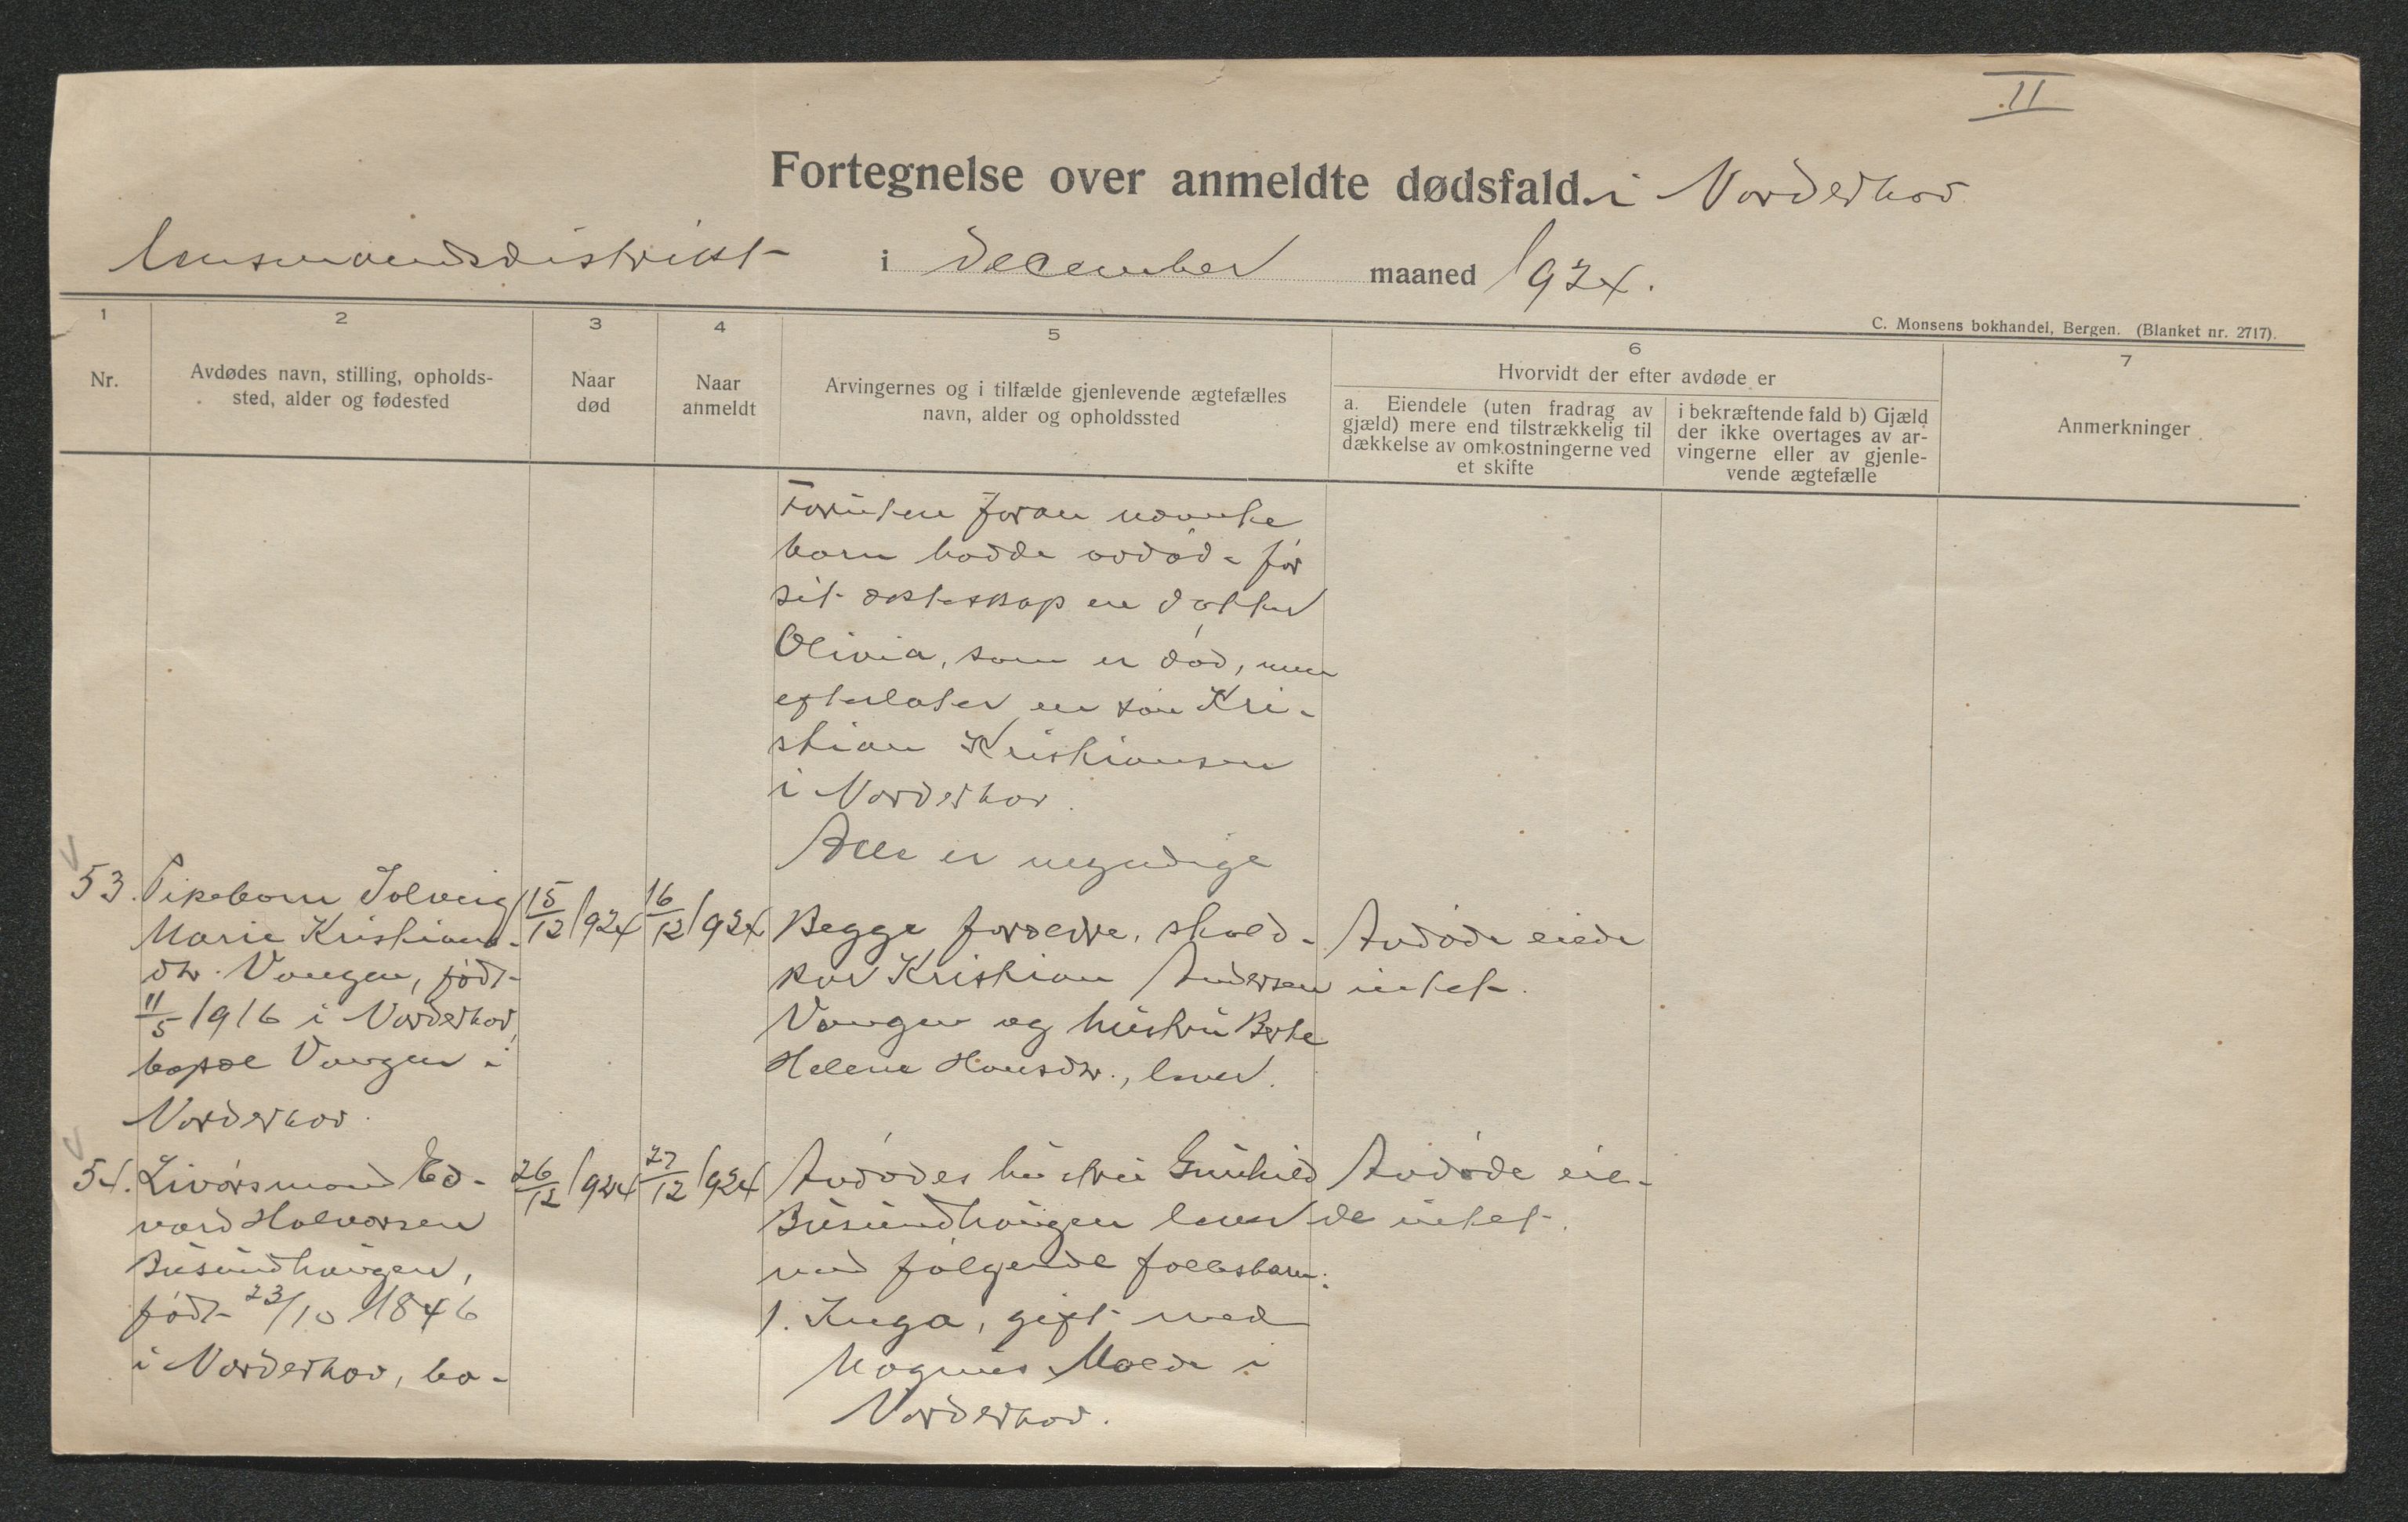 II
Fortegnelse over anmeldte dødsfald. i Norderhov
lensmandsdistrikt i december maaned 1924.
C. Monsens bokhandel, Bergen. (Blanket nr. 2717).
1 2 3 4 5 6 7
Nr.
Avdødes navn, stilling, opholds-
sted, alder og fødested
Naar
død
Naar
anmeldt
Arvingernes og i tilfælde gjenlevende ægtefælles
navn, alder og opholdssted
Hvorvidt der efter avdøde er
a. Eiendele (uten fradrag av
gjæld) mere end tilstrækkelig til
dækkelse av omkostningerne ved
et skifte
i bekræftende fald b) Gjæld
der ikke overtages av ar-
vingerne eller av gjenle-
vende ægtefælle
Anmerkninger
Foruten foran nævnte
barn hadde avdøde før
sit ekteskap en datter
Olivia, som er død, men
efterlater en søn Kri-
stian Kristiansen
i Norderhov.
Alle er myndige
53. Pikebarn Solveig
Marie Kristians-
dtr. Vangen, født
11/5 1916 i Norderhov,
bopæl Vangen i
Norderhov.
15/12 1924
16/12 1924
Begge forældre, skred-
kar Kristian Andersen
Vangen og hustru Berte
Helene Hansdtr., lever.
Avdøde eiede
intet.
54. Livørsmand Ed-
vard Halvorsen
Busundhaugen,
født 23/10 1846
i Norderhov, bo-
26/12 1924
27/12 1924
Avdødes hustru Gunhild
Busundhaugen lever
med følgende fællesbarn:
1. Inga, gift med
Magnus Moede i
Norderhov.
Avdøde eie-
de intet.